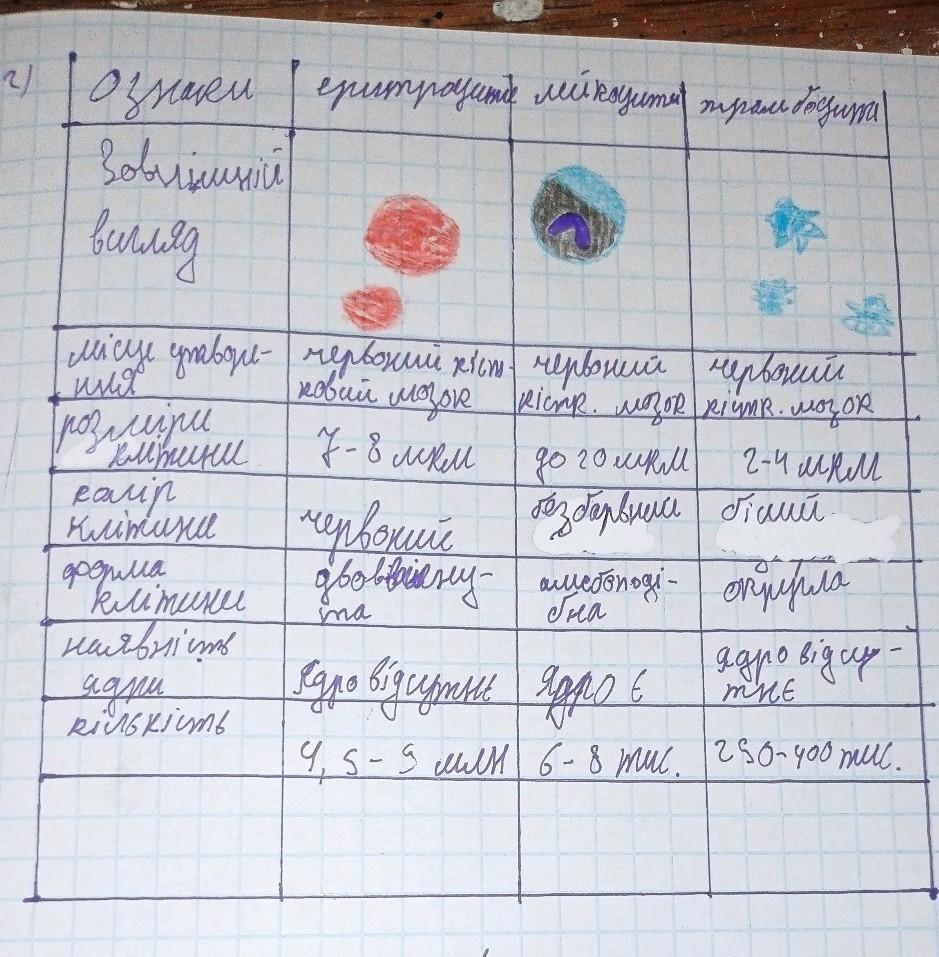 2)
Ознаки еритроцити лейкоцити тромбоцити
Зовнішній
вигляд
місце утворе-
ння
червоний кіст-
ковий мозок
червоний
кістк. мозок
червоний
кістк. мозок
розміри
клітини
7-8 мкм
до 20 мкм
2-4 мкм
колір
клітини
червоний
безбарвний
білий
форма
клітини
двоввігну-
та
амебоподі-
бна
округла
наявність
ядра
Ядро відсутнє
Ядро є
ядро відсу-
тнє
кількість
4,5-5 млн
6-8 тис.
250-400 тис.